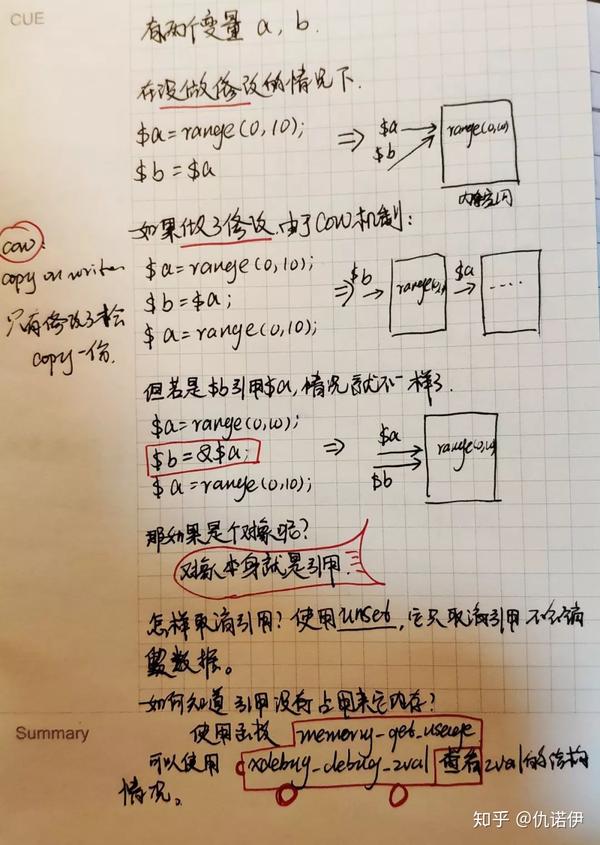 CUE
有两个变量 a, b.
在没做修改的情况下.
$a = range(0,10);
$b = $a
⇒ $a
$b
range(0,10)
内存空间
如果做了修改,由于COW机制:
cow.
copy on write
只有修改了才会
copy一份.
$a = range(0,10);
$b = $a;
$a = range(0,10);
⇒ $b → → $a →
....
但若是$b引用$a,情况就不一样了.
$a = range(0,10);
$b = &$a;
$a = range(0,10);
⇒ $a
$b
range(0,10)
那如果是个对象呢?
对象本身就是引用.
怎样取消引用? 使用unset,它只取消引用不会销
毁数据。
如何知道引用没有占用来它内存?
Summary
使用函数 memory_get_useage
可以使用 xdebug_debug_zval 查看zval的结构
情况。
知乎 @仇诺伊